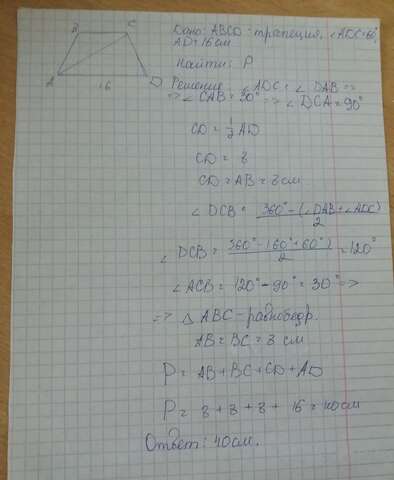 B C
A D
16
Дано: ABCD - трапеция, ∠ADC=60°,
AD=16см
Найти: P
Решение ∠ADC = ∠DAB =>
=> ∠CAB = 30° => ∠DCA = 90°
CD = 1/2 AD
CD = 8
CD = AB = 8 см
∠DCB = 360° - (∠DAB + ∠ADC) / 2
∠DCB = 360° - (60° + 60°) / 2 = 120°
∠ACB = 120° - 90° = 30° =>
=> △ABC - равнобедр.
AB = BC = 8 см
P = AB + BC + CD + AD
P = 8 + 8 + 8 + 16 = 40 см
Ответ: 40 см.